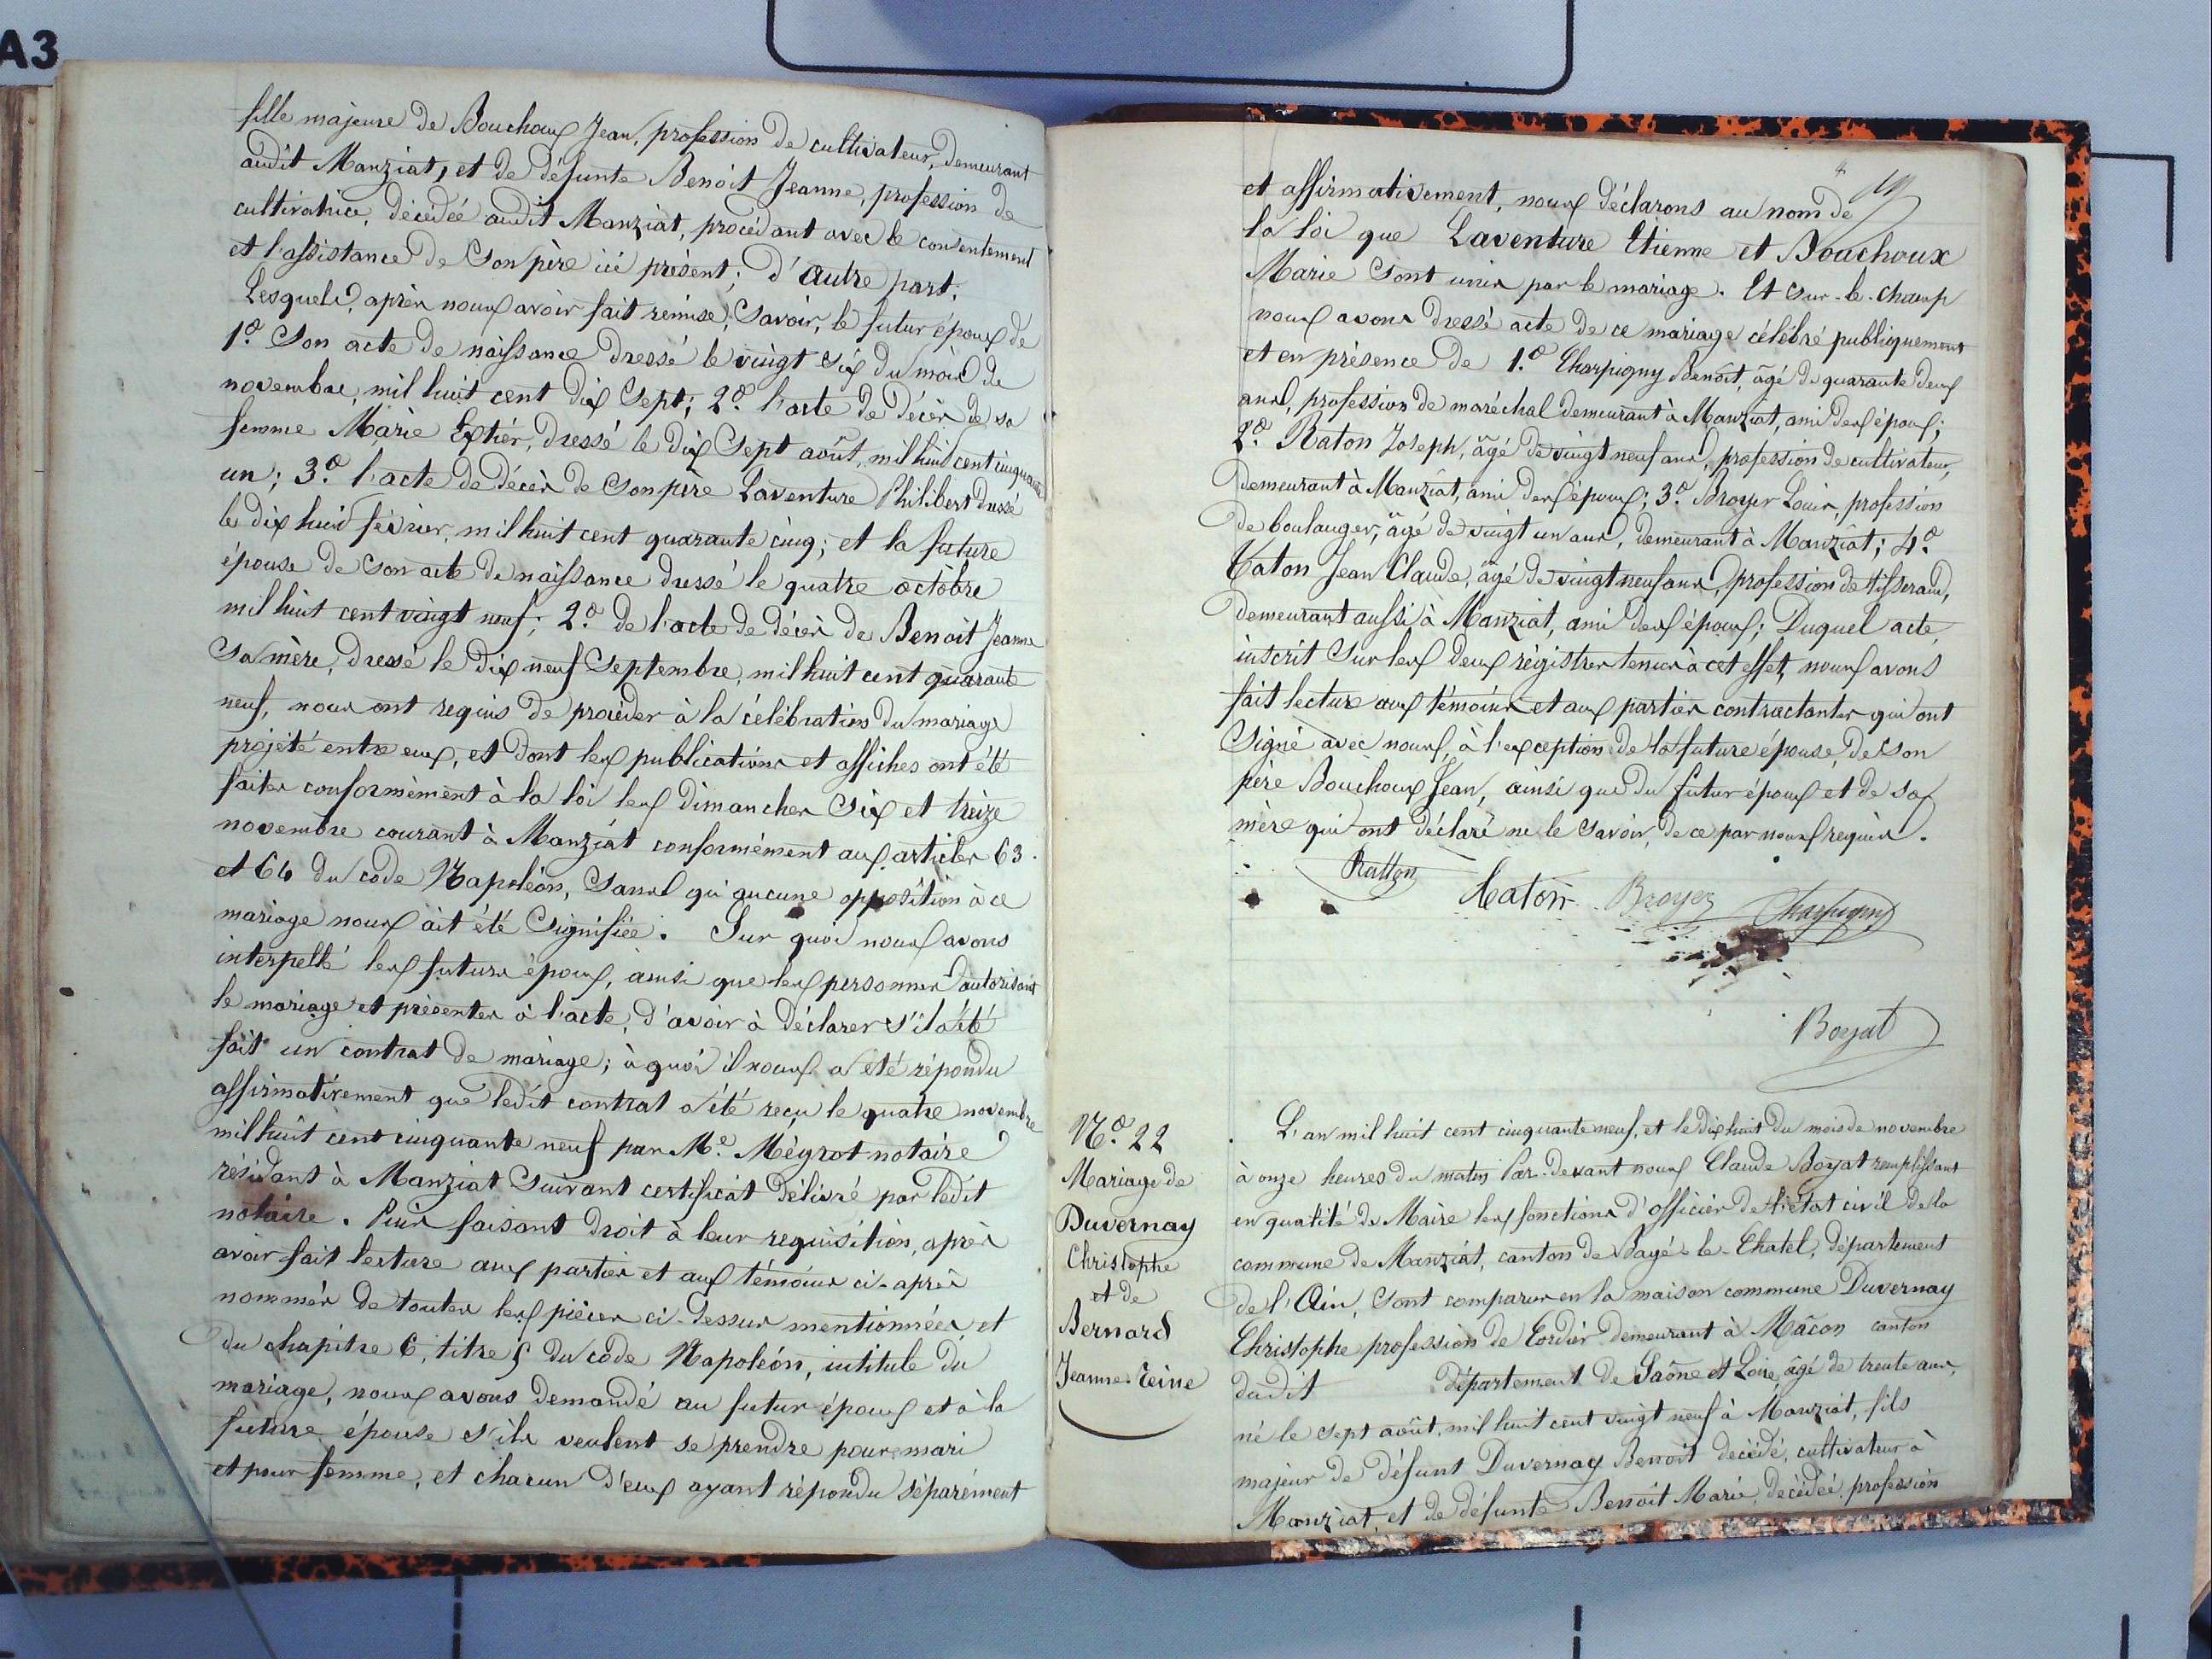 A3
fille majeure de Bouchoux Jean, profession de cultivateur, demeurant
audit Manziat, et de défunte Benoit Jeanne, profession de
cultivatrice, décédée audit Manziat, procédant avec le consentement
et l'assistance de son père ici présent; d'autre part.
Lesquels, après nous avoir fait remise, Savoir, le futur époux de
1.o Son acte de naissance dressé le vingt six du mois de
novembre, mil huit cent dix Sept; 2.o l'acte de décès de sa
femme Marie Extier, dressé le dix Sept août, mil huit cent cinquante
un; 3.o l'acte de décès de son père Laventure Philibert dressé
le dix huit février, mil huit cent quarante cinq; et la future
épouse de son acte de naissance dressé le quatre octobre
mil huit cent vingt neuf; 2.o de l'acte de décès de Benoit Jeanne
Sa mère, dressé le dix neuf Septembre, mil huit cent quarante
neuf, nous ont requis de procéder à la célébration du mariage
projété entre eux, et dont les publications et affiches ont été
faites conformément à la loi les dimanches six et treize
novembre courant à Manziat conformément aux articles 63.
et 64 du code Napoléon, Sans qu'aucune opposition à ce
mariage nous ait été Signifiée. Sur quoi nous avons
interpellé les futurs époux, ainsi que les personnes autorisant
le mariage et présentes à l'acte, d'avoir à déclarer s'il a été
fait un contrat de mariage; à quoi il nous a été répondu
affirmativement que ledit contrat a été reçu le quatre novembre
mil huit cent cinquante neuf par M.e Mégrot notaire
résidant à Manziat Suivant certificat délivré par ledit
notaire. Puis faisant droit à leur requisition, après
avoir fait lecture aux parties et aux témoins ci-après
nommés de toutes les pièces ci-dessus mentionnées, et
du chapitre 6, titre 5 du code Napoléon, intitule du
mariage, nous avons demandé au futur époux et à la
future épouse s'ils veulent se prendre pour mari
et pour femme, et chacun d'eux ayant répondu séparément
et affirmativement, nous déclarons au nom de
la loi que Laventure Etienne et Bouchoux
Marie sont unis par le mariage. Et sur-le-champ
nous avons dressé acte de ce mariage célébré publiquement
et en présence de 1.o Charpigny Benoit, âgé de quarante deux
ans, profession de maréchal demeurant à Manziat, ami des époux;
2.o Raton Joseph, âgé de vingt neuf ans, profession de cultivateur,
demeurant à Manziat, ami des époux; 3.o Broyer Louis, profession
de boulanger, âgé de vingt un ans, demeurant à Manziat; 4.o
Caton Jean Claude, âgé de vingt neuf ans, profession de tisserand,
demeurant aussi à Manziat, ami des époux; Duquel acte,
inscrit sur les deux régistres tenus à cet effet, nous avons
fait lecture aux témoins et aux parties contractantes qui ont
Signé avec nous, à l'exception de la future épouse, de son
père Bouchoux Jean, ainsi que du futur époux et de sa
mère qui ont déclaré ne le savoir, de ce par nous requis.
Ratton Caton Broyer Charpigny
Boyat
N.o 22
Mariage de
Duvernay
Christophe
et de
Bernard
Jeanne Reine
L'an mil huit cent cinquante neuf, et le dix huit du mois de novembre
à onze heures du matin Par-devant nous Claude Boyat remplissant
en qualité de Maire les fonctions d'officier de l'état civil de la
commune de Manziat, canton de Bagé-le-Chatel, département
de l'Ain, sont comparus en la maison commune Duvernay
Christophe profession de Cordier demeurant à Mâcon canton
dudit département de Saône et Loire, âgé de trente ans,
né le sept août, mil huit cent vingt neuf à Manziat, fils
majeur de défunt Duvernay Benoit décédé, cultivateur à
Manziat, et de défunte Benoit Marie, décédée, profession